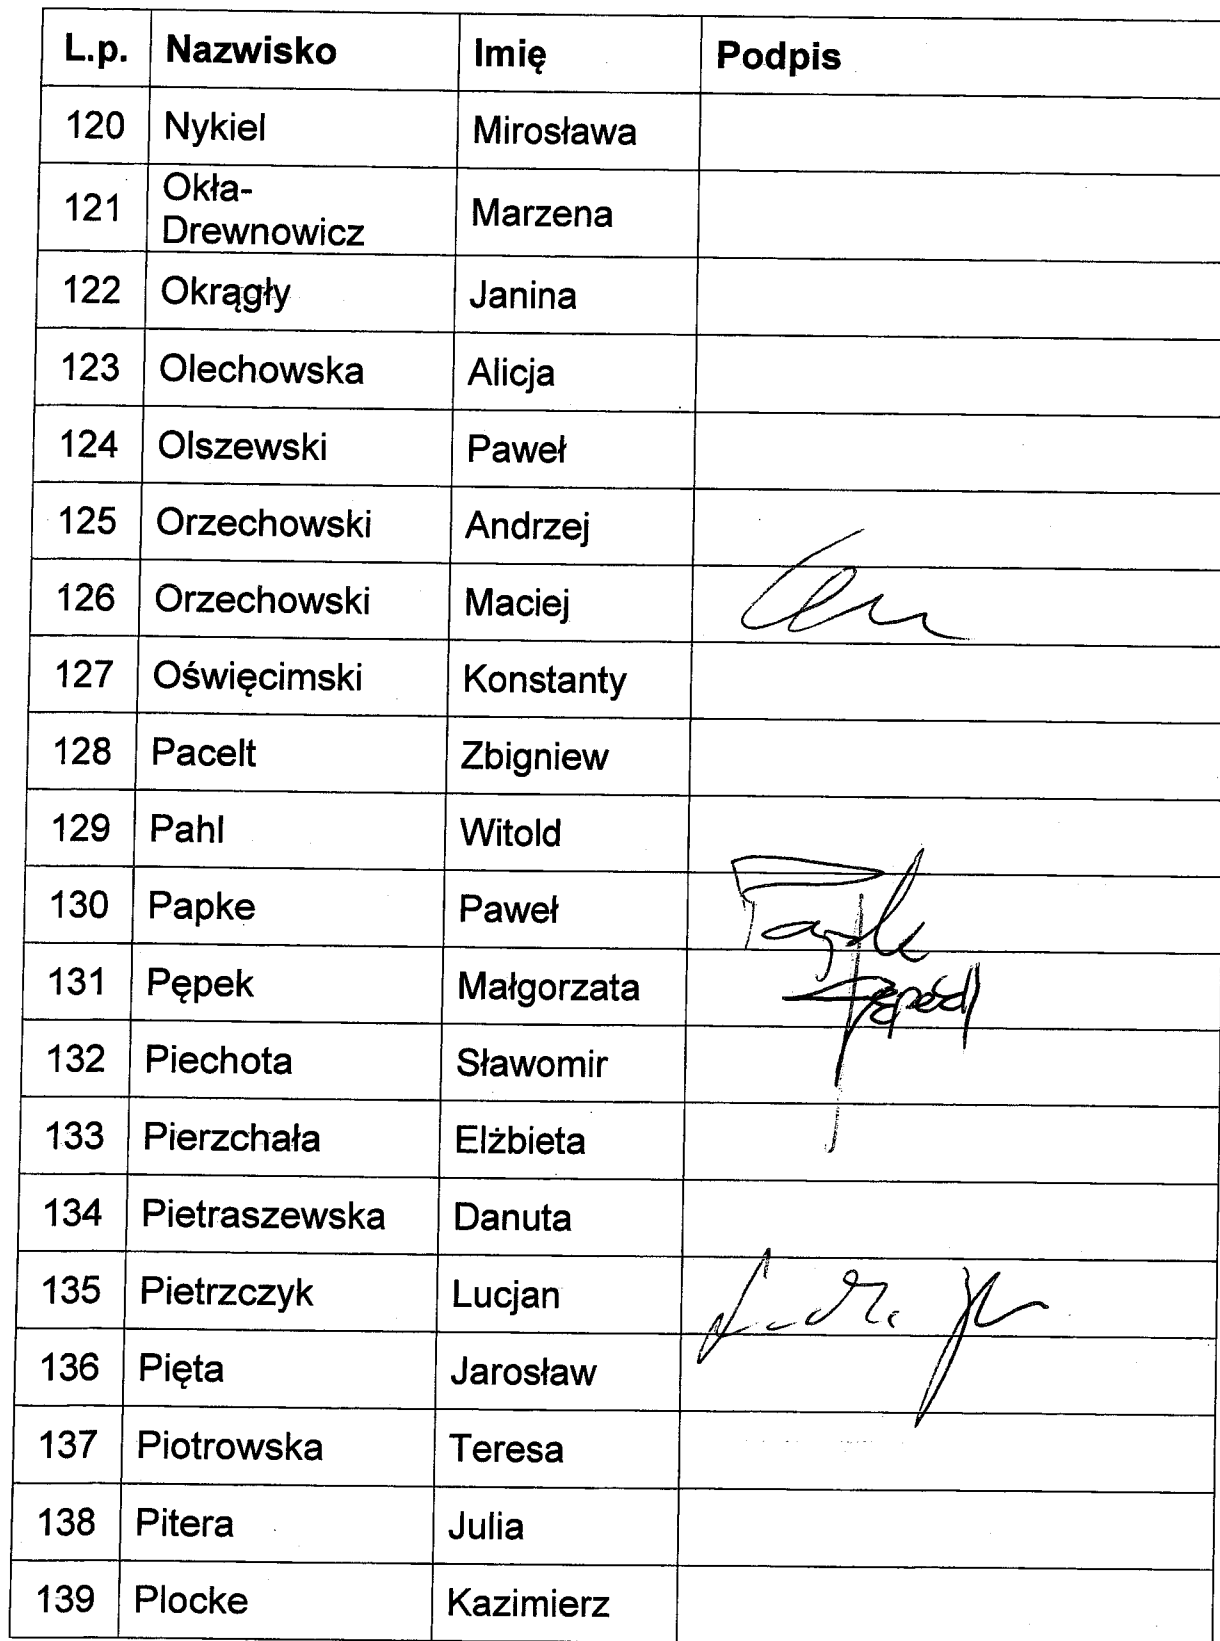 L.p. Nazwisko Imię Podpis
120 Nykiel Mirosława
121 Okła-
Drewnowicz Marzena
122 Okrągły Janina
123 Olechowska Alicja
124 Olszewski Paweł
125 Orzechowski Andrzej
126 Orzechowski Maciej
127 Oświęcimski Konstanty
128 Pacelt Zbigniew
129 Pahl Witold
130 Papke Paweł
131 Pępek Małgorzata
132 Piechota Sławomir
133 Pierzchała Elżbieta
134 Pietraszewska Danuta
135 Pietrzczyk Lucjan
136 Pięta Jarosław
137 Piotrowska Teresa
138 Pitera Julia
139 Plocke Kazimierz